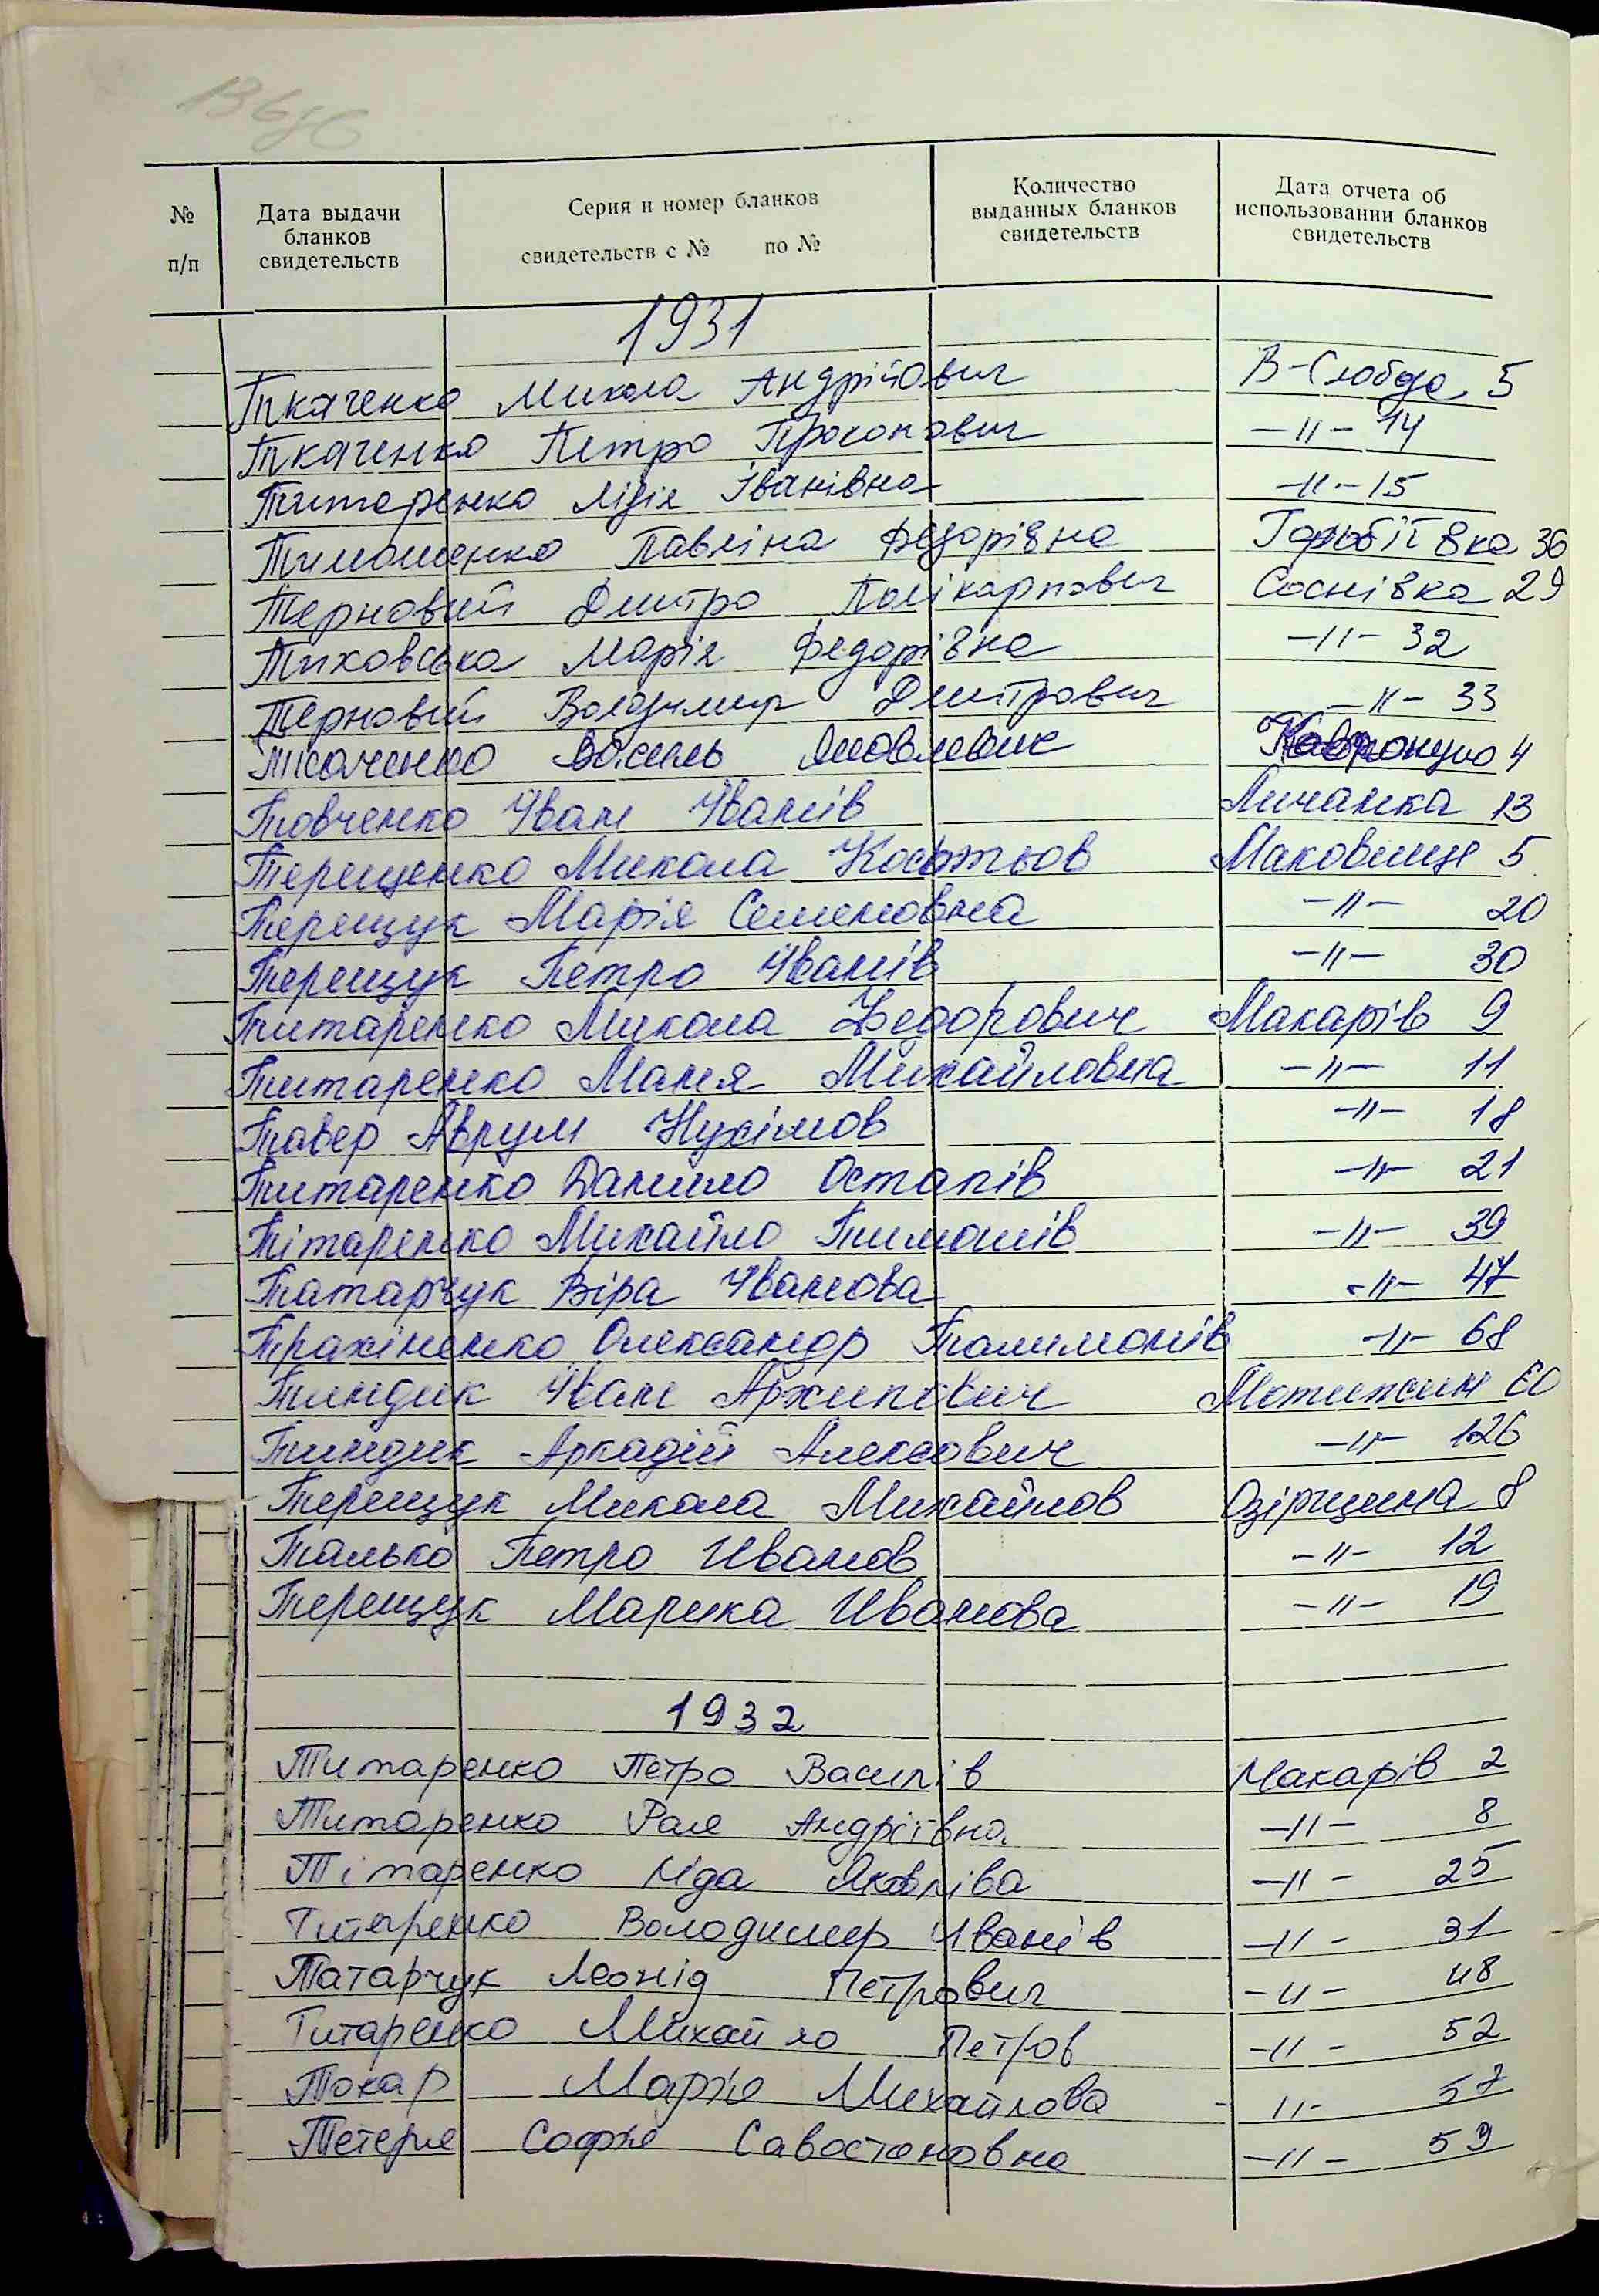 № п/п
Дата выдачи бланков свидетельств
Серия и номер бланков свидетельств с № по №
Количество выданных бланков свидетельств
Дата отчета об использовании бланков свидетельств
1931
Ткаченко Микола Андрійович В-Слобода 5
Ткаченко Петро Прокопович -//- 14
Титаренко Лідія Іванівна -//- 15
Тимошенко Павліна Федорівна Горобіївка 36
Терновий Дмитро Полікарпович Соснівка 29
Тиховська Марія Федорівна -//- 32
Терновий Володимир Дмитрович -//- 33
Ткаченко Василь Яковлевич 4
Товченко Іван Іванів Личанка 13
Терещенко Микола Костьов Маковище 5
Терещук Марія Семеновна -//- 20
Терещук Петро Іванів -//- 30
Титаренко Микола Федорович Макарів 9
Титаренко Маня Михайловна -//- 11
Тавер Аврум Нухімов -//- 18
Титаренко Данило Остапів -//- 21
Тітаренко Михайло Тимошів -//- 39
Татарчук Віра Іванова -//- 47
Трахіненко Олександр Талимонів -//- 68
Тиндик Іван Архипович Мотижин 60
Тиндик Аркадій Алексович -//- 126
Терещук Микола Михайлов Озірщина 8
Талько Петро Иванов -//- 12
Терещук Марика Иванова -//- 19
1932
Титаренко Петро Василів Макарів 2
Титаренко Рая Андріївна -//- 8
Тітаренко Ліда Яковліва -//- 25
Титаренко Володимир Іванів -//- 31
Татарчук Леонід Петрович -//- 48
Титаренко Михайло Петров -//- 52
Токар Марія Михайлова -//- 57
Тетеря Софія Савостановна -//- 59